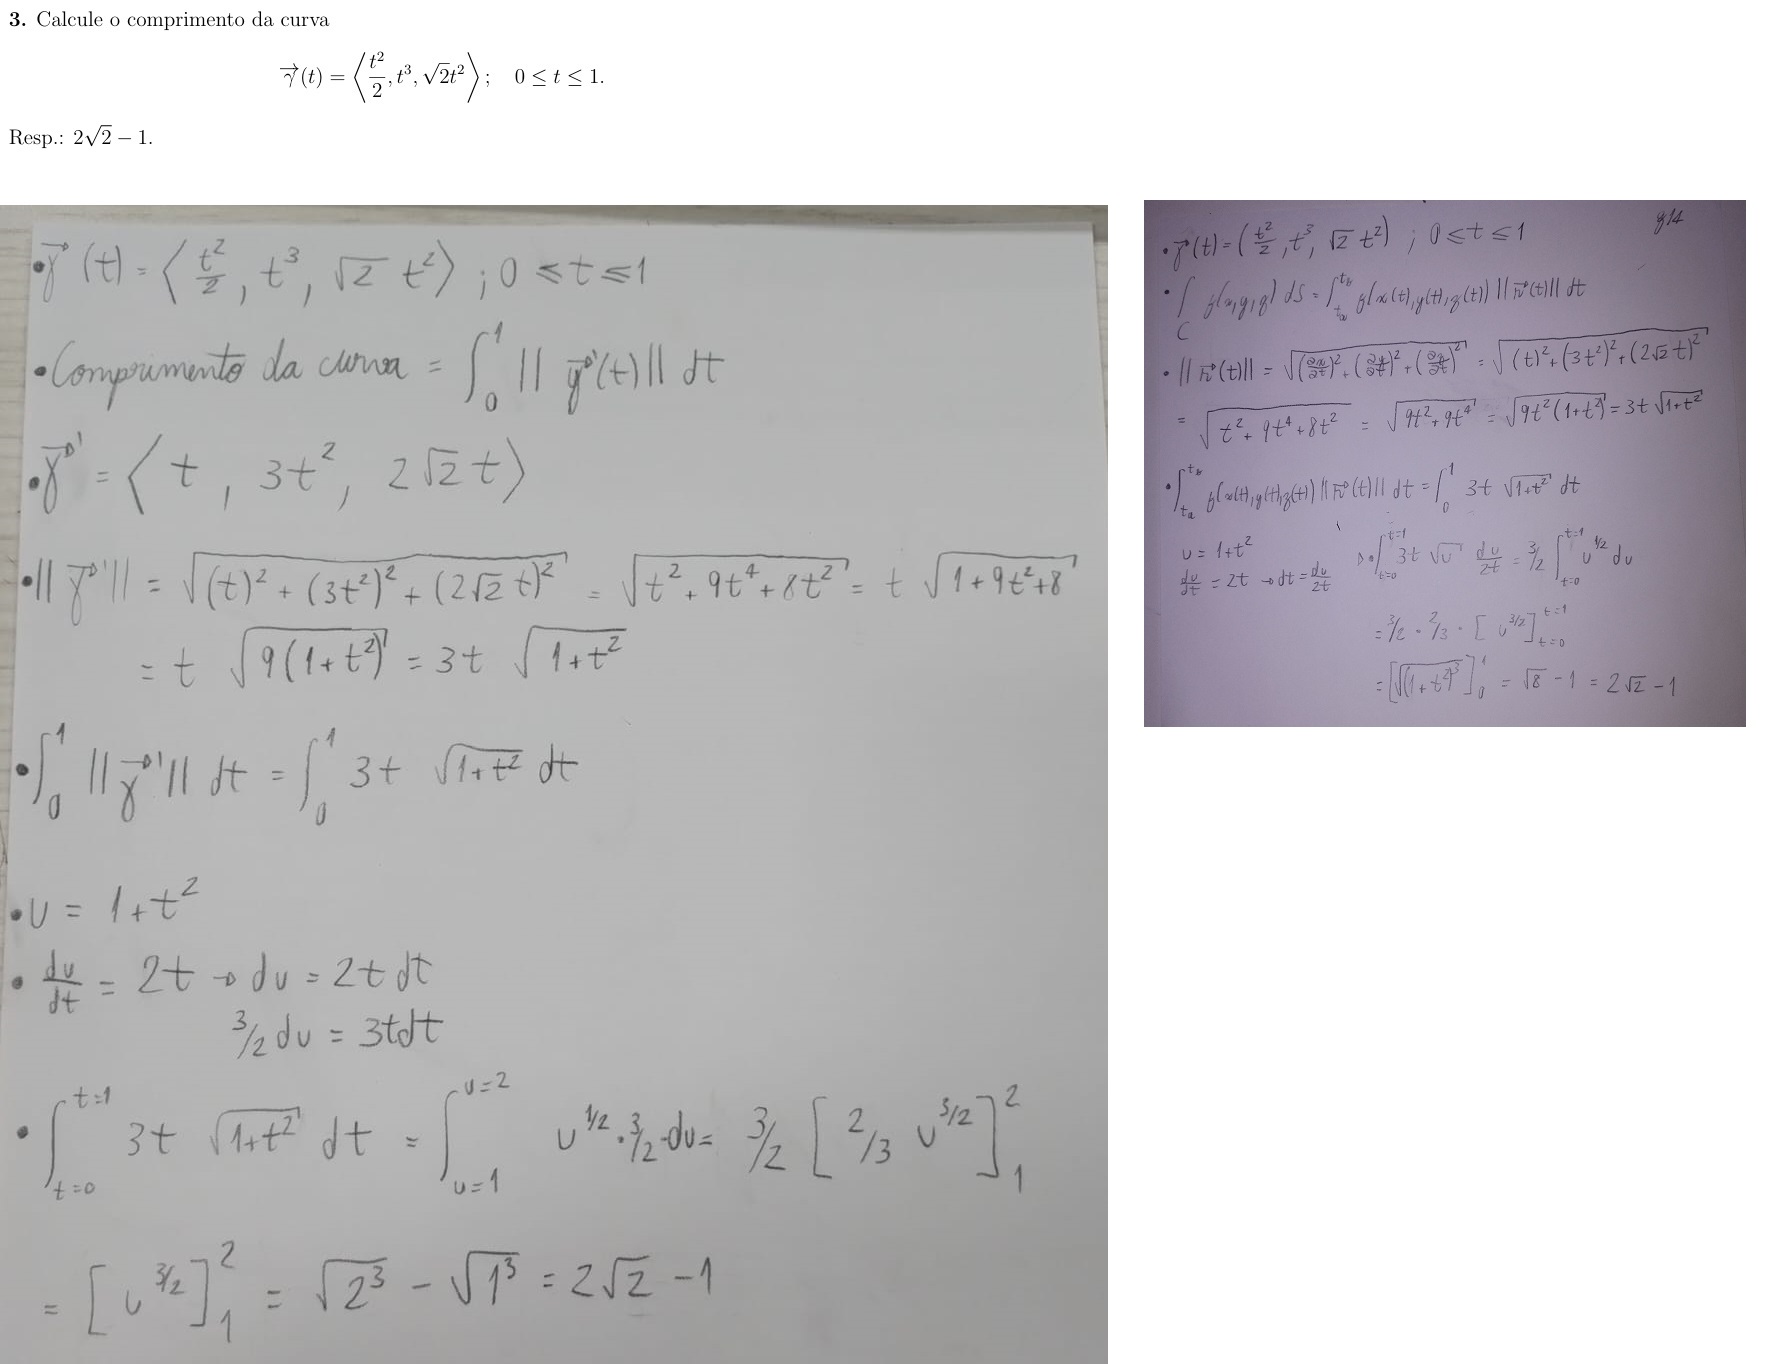 3. Calcule o comprimento da curva
γ⃗(t) = ⟨t²/2, t³, √2t²⟩;   0 ≤ t ≤ 1.
Resp.: 2√2 − 1.
• γ⃗(t) = ⟨t²/2, t³, √2 t²⟩ ; 0 ⩽ t ⩽ 1
• Comprimento da curva = ∫₀¹ || γ⃗'(t) || dt
• γ⃗' = ⟨t, 3t², 2√2 t⟩
• || γ⃗' || = √((t)² + (3t²)² + (2√2 t)²) = √(t² + 9t⁴ + 8t²) = t √(1 + 9t² + 8)
= t √(9(1+t²)) = 3t √(1+t²)
• ∫₀¹ || γ⃗' || dt = ∫₀¹ 3t √(1+t²) dt
• u = 1+t²
• du/dt = 2t → du = 2t dt
3/2 du = 3tdt
• ∫_{t=0}^{t=1} 3t √(1+t²) dt = ∫_{u=1}^{u=2} u^{1/2} · 3/2 · du = 3/2 [2/3 u^{3/2}]₁²
= [u^{3/2}]₁² = √2³ − √1³ = 2√2 − 1
• γ⃗(t) = (t²/2, t³, √2 t²) ; 0 ⩽ t ⩽ 1
• ∫_C f(x,y,z) ds = ∫_{ta}^{tb} f(x(t), y(t), z(t)) || r⃗'(t) || dt
• || r⃗'(t) || = √((∂x/∂t)² + (∂y/∂t)² + (∂z/∂t)²) = √((t)² + (3t²)² + (2√2 t)²)
= √(t² + 9t⁴ + 8t²) = √(9t² + 9t⁴) = √(9t²(1+t²)) = 3t √(1+t²)
• ∫_{ta}^{tb} f(x(t), y(t), z(t)) || r⃗'(t) || dt = ∫₀¹ 3t √(1+t²) dt
u = 1+t²
du/dt = 2t → dt = du/2t
• ∫_{t=0}^{t=1} 3t √u du/2t = 3/2 ∫_{t=0}^{t=1} u^{1/2} du
= 3/2 · 2/3 · [u^{3/2}]_{t=0}^{t=1}
= [√(1+t²)³]₀¹ = √8 − 1 = 2√2 − 1